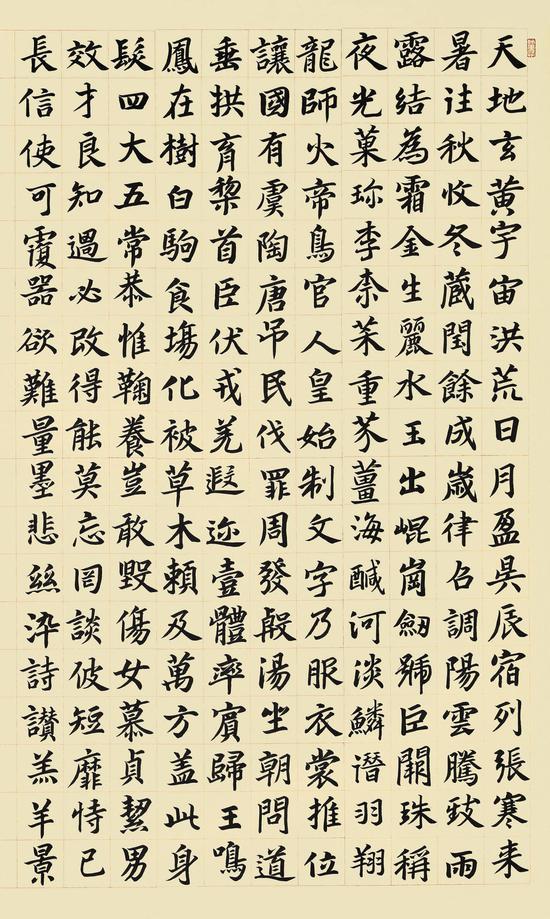 天地玄黃宇宙洪荒日月盈昃辰宿列張寒来
暑往秋收冬藏閏餘成歲律召調陽雲騰致雨
露結為霜金生麗水玉出崐崗劒號巨闕珠稱
夜光菓珍李柰菜重芥薑海醎河淡鱗潛羽翔
龍師火帝鳥官人皇始制文字乃服衣裳推位
讓國有虞陶唐弔民伐罪周發殷湯坐朝問道
垂拱育黎首臣伏戎羌遐迩壹體率賓歸王鳴
鳳在樹白駒食場化被草木賴及萬方盖此身
髮四大五常恭惟鞠養豈敢毀傷女慕貞絜男
效才良知過必改得能莫忘罔談彼短靡恃己
長信使可覆器欲難量墨悲絲染詩讃羔羊景